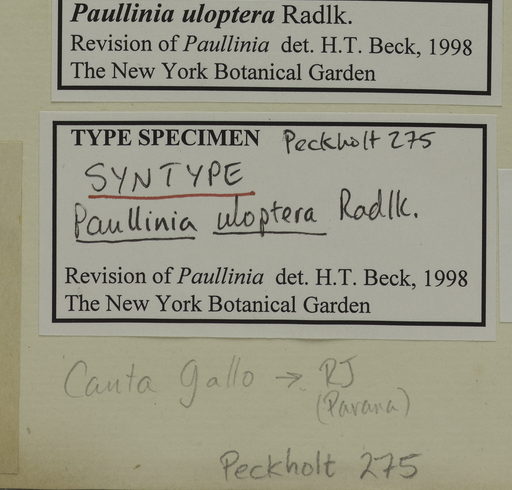 Paullinia uloptera Radlk.
Revision of Paullinia det. H.T. Beck, 1998
The New York Botanical Garden
TYPE SPECIMEN Peckholt 275
SYNTYPE
Paullinia uloptera Radlk.
Revision of Paullinia det. H.T. Beck, 1998
The New York Botanical Garden
Canta Gallo → RJ
(Parana)
Peckholt 275